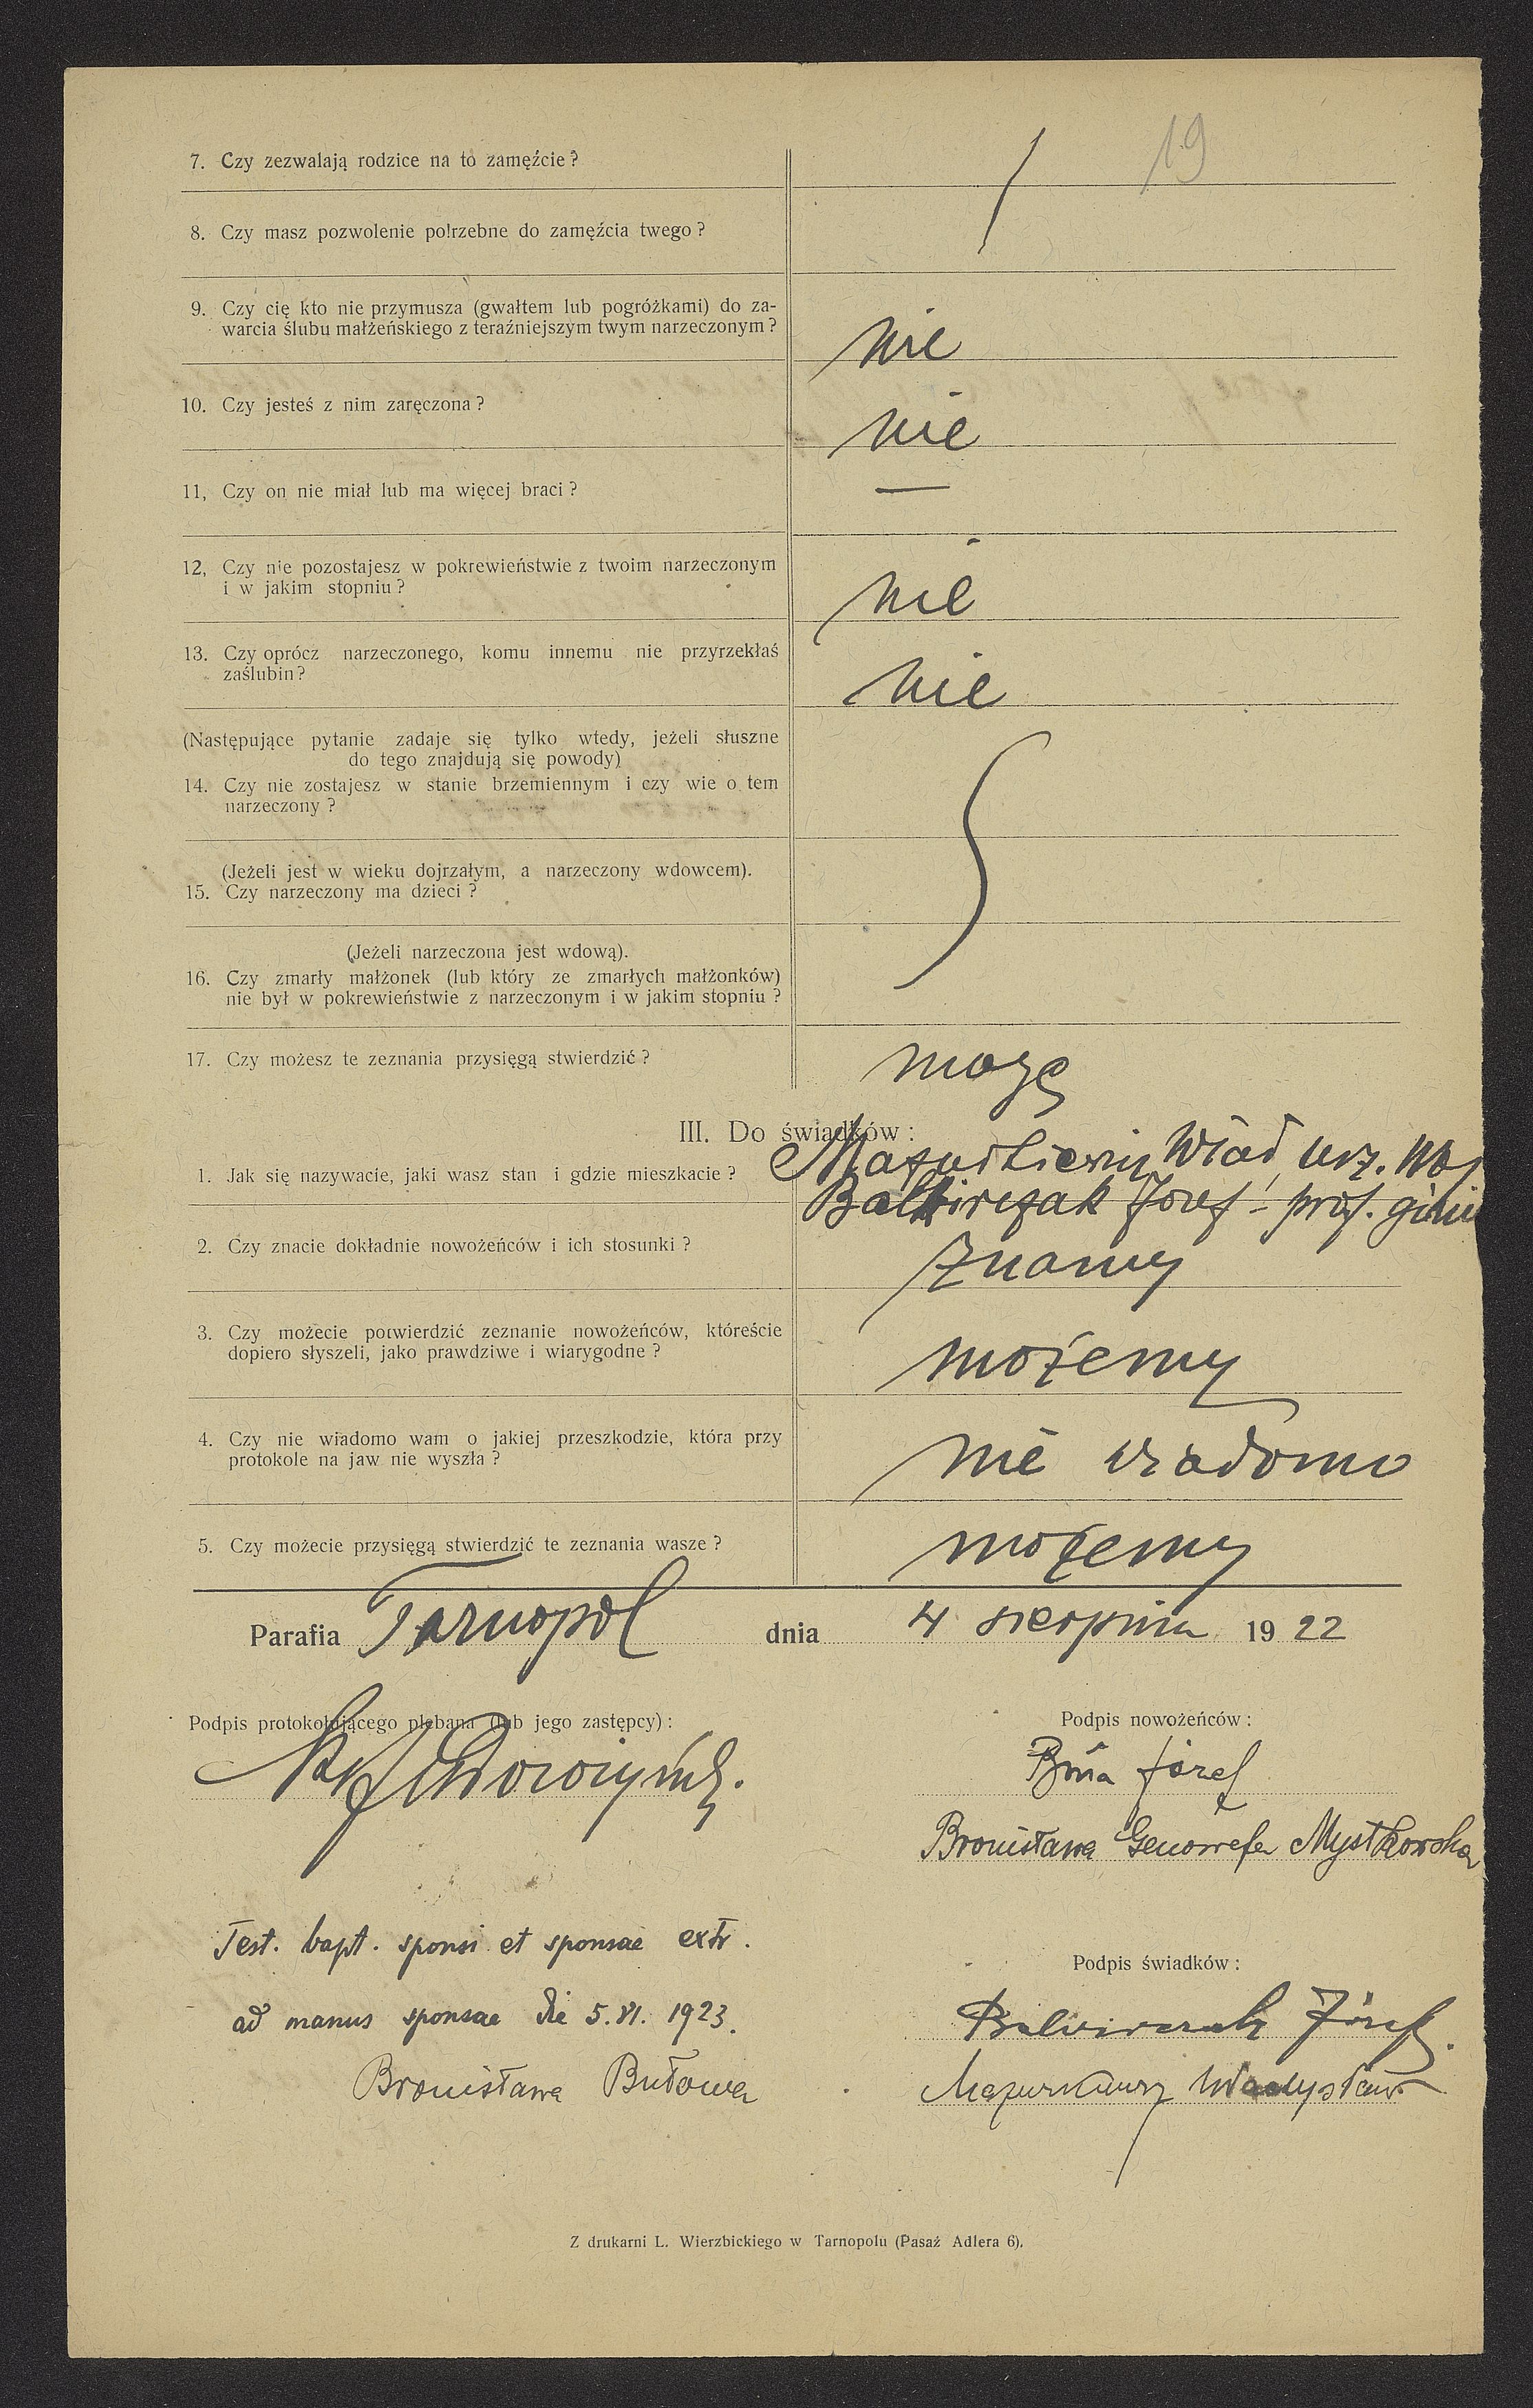 19
7. Czy zezwalają rodzice na to zamęźcie?
8. Czy masz pozwolenie potrzebne do zamęźcia twego?
9. Czy cię kto nie przymusza (gwałtem lub pogróżkami) do za-
warcia ślubu małżeńskiego z teraźniejszym twym narzeczonym?
nie
10. Czy jesteś z nim zaręczona?
nie
11, Czy on nie miał lub ma więcej braci?
—
12, Czy nie pozostajesz w pokrewieństwie z twoim narzeczonym
i w jakim stopniu?
nie
13. Czy oprócz narzeczonego, komu innemu nie przyrzekłaś
zaślubin?
nie
(Następujące pytanie zadaje się tylko wtedy, jeżeli słuszne
do tego znajdują się powody)
14. Czy nie zostajesz w stanie brzemiennym i czy wie o tem
narzeczony?
(Jeżeli jest w wieku dojrzałym, a narzeczony wdowcem).
15. Czy narzeczony ma dzieci?
(Jeżeli narzeczona jest wdową).
16. Czy zmarły małżonek (lub który ze zmarłych małżonków)
nie był w pokrewieństwie z narzeczonym i w jakim stopniu?
17. Czy możesz te zeznania przysięgą stwierdzić?
mogę
III. Do świadków:
1. Jak się nazywacie, jaki wasz stan i gdzie mieszkacie?
Wład, urz.
Józef - prof.
2. Czy znacie dokładnie nowożeńców i ich stosunki?
znamy
3. Czy możecie potwierdzić zeznanie nowożeńców, któreście
dopiero słyszeli, jako prawdziwe i wiarygodne?
możemy
4. Czy nie wiadomo wam o jakiej przeszkodzie, która przy
protokole na jaw nie wyszła?
nie wiadomo
5. Czy możecie przysięgą stwierdzić te zeznania wasze?
możemy
Parafia Tarnopol dnia 4 sierpnia 1922
Podpis protokołującego plebana (lub jego zastępcy):
Podpis nowożeńców:
Józef
Bronisława Genowefa Mystkowska
Test. bapt. sponsi et sponsae extr.
ad manus sponsae die 5.VI. 1923.
Bronisława Bułowa
Podpis świadków:
Józef.
Władysław
Z drukarni L. Wierzbickiego w Tarnopolu (Pasaż Adlera 6),